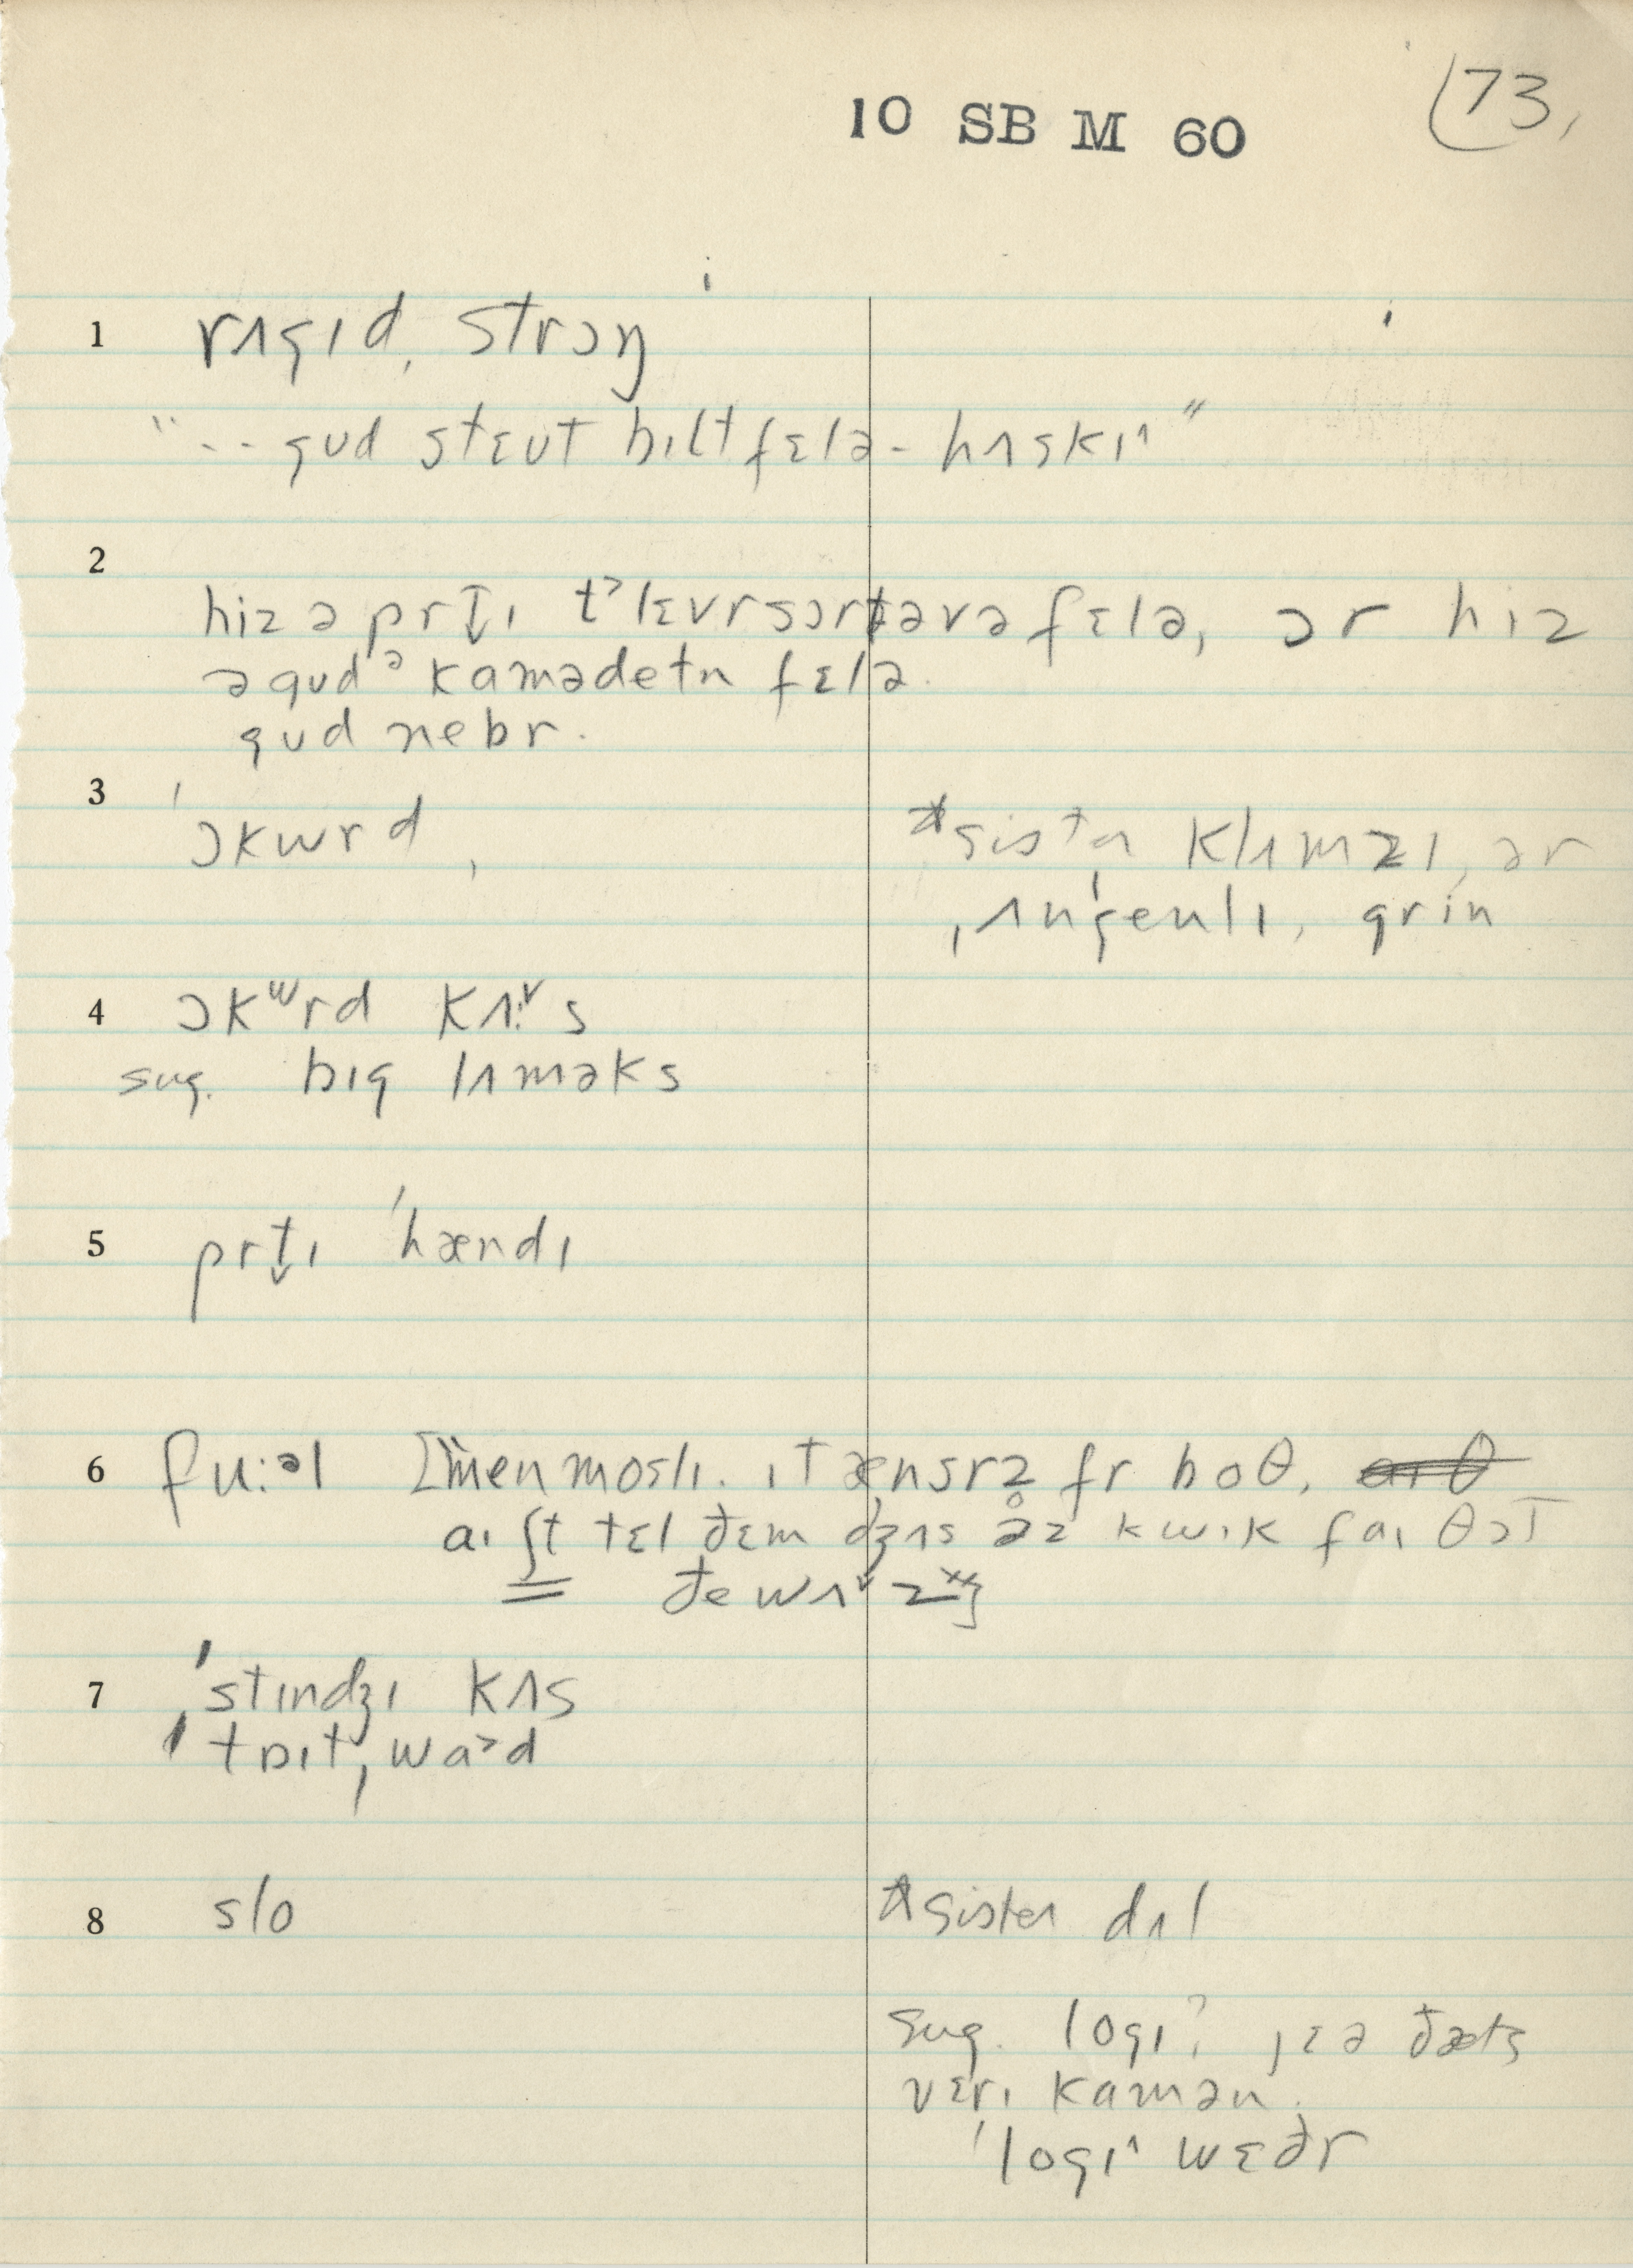 10 SB M 60
73,
1 rʌgɪd, strɔŋ
"-- gʊd stɛʊt bɪlt fɛlə - hʌskɪ^"
2
hiz ə prt̬ɪ t˃ lɛvrsɔrtəvə fɛlə, ɔr hiz
ə gʊd ə kamədetn fɛlə.
gʊd nebr.
3 'ɔkwrd,
*sister klʌmzɪ, ər
ˌʌn'genlɪ, grin
4 ɔkʷrd kʌs
sug. bɪg lʌməks
5 prt̬ɪ 'hændɪ
6 fu:əl [menmoslɪ. ɪt ænsrz fr boθ.
aɪ ʃt tɛl ðɛm dʒʌs əz kwɪk faɪ θɔt
ðe wʌz]
7 'stɪndʒɪ kʌs
'tɒɪt,wa˃d
8 slo
*sister dʌl
sug. logɪ? jɛə ðæts
vɛrɪ kamən.
'logɪ^ wɛðr